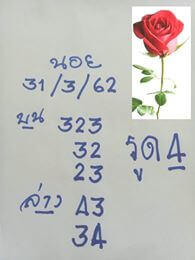 นอย
31/3/62
บน 323
32 รูด 4
23
ล่าง 43
34